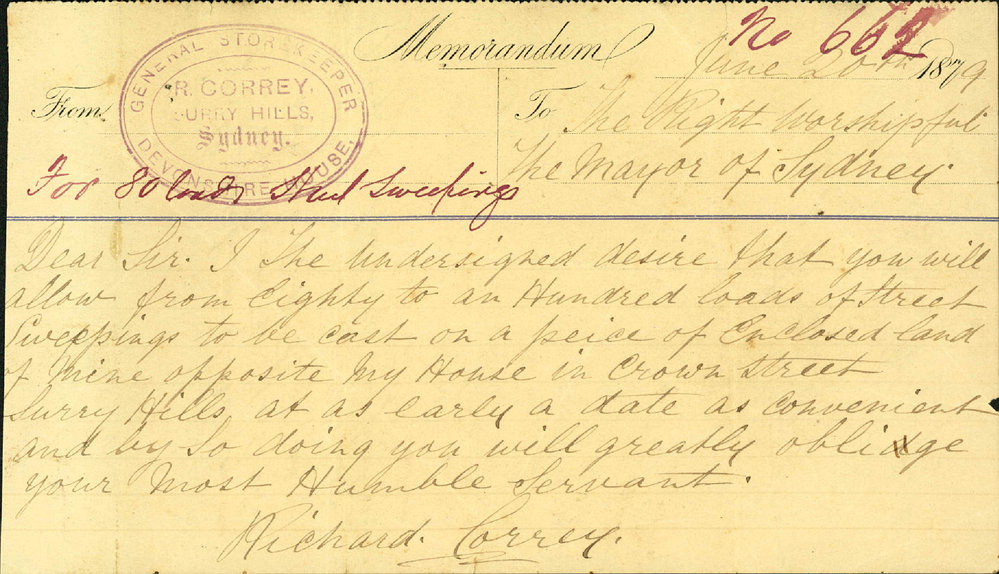 Memorandum
No 662
June 20th 1879
From
GENERAL STOREKEEPER
R. CORREY,
SURRY HILLS,
Sydney.
DEVONSHIRE HOUSE.
To
The Right Worshipful
The Mayor of Sydney.
For 80 loads Street Sweepings
Dear Sir. I The undersigned desire that you will
allow from Eighty to an Hundred loads of Street
Sweepings to be cast on a peice of Enclosed land
of mine opposite My House in Crown Street
Surry Hills, at as early a date as convenient
and by so doing you will greatly oblidge
your Most Humble Servant.
Richard. Correy.